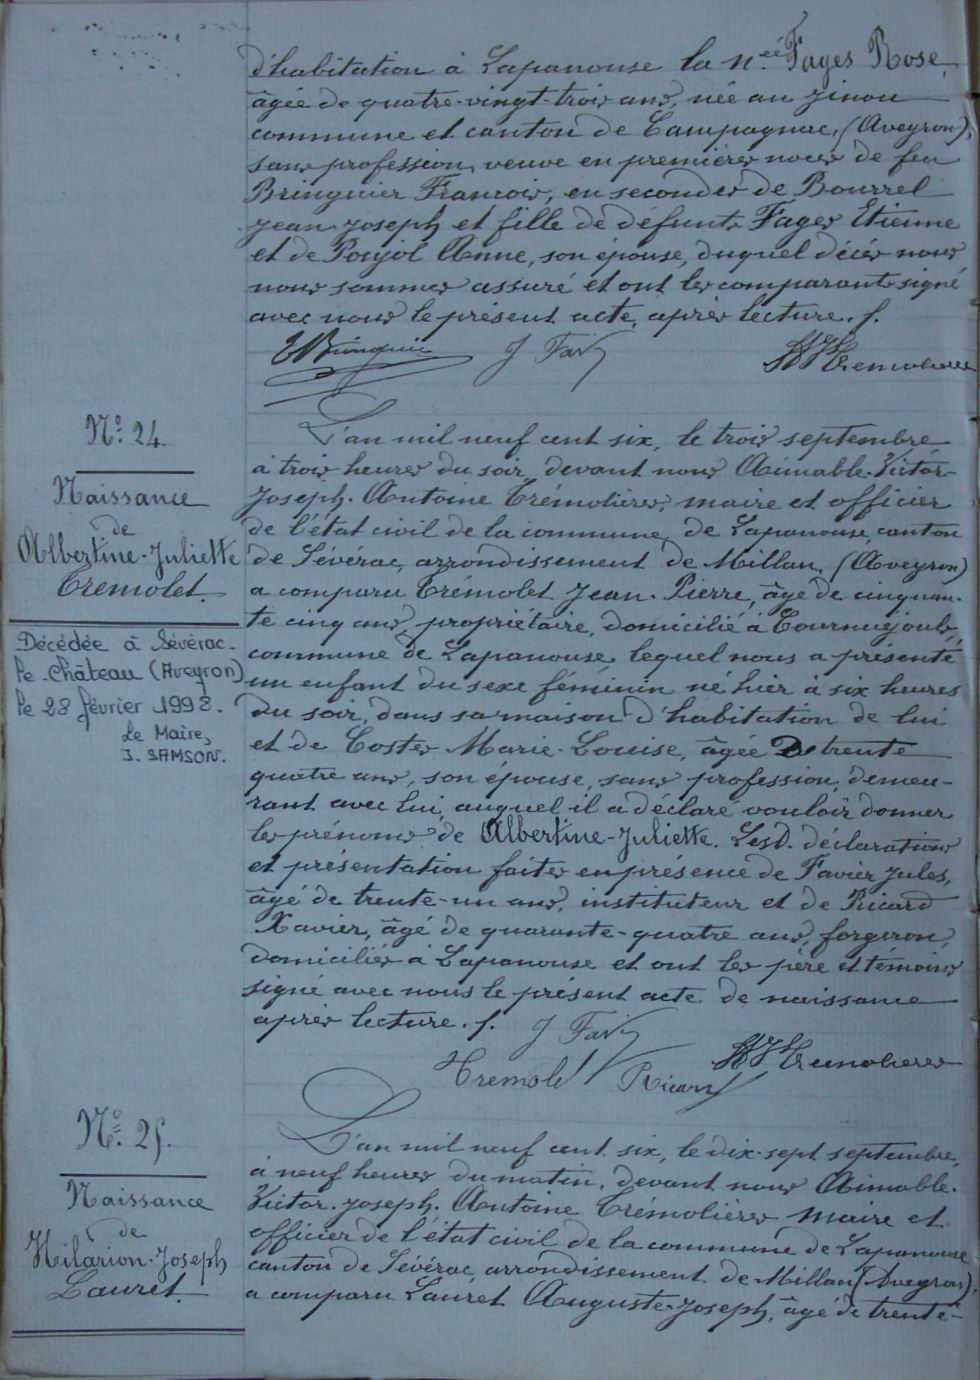 d'habitation à Lapanouse la n.ée Fages Rose,
âgée de quatre-vingt-trois ans, née au Jinou
commune et canton de Campagnac, (Aveyron),
sans profession, veuve en premières noces de feu
Bringuier François, en secondes de Bourrel
Jean-Joseph et fille de défunts Fages Etienne
et de Poujol Anne, son épouse, duquel décès nous
nous sommes assuré et ont les comparants signé
avec nous le présent acte, après lecture. /.
EBringuier J Favi AVJTremolieres
N° 24.
Naissance
de
Albertine-Juliette
Tremolet.
Décédée à Sévérac-
le-Château (Aveyron)
le 28 février 1998.
Le Maire,
J. SAMSON.
L'an mil neuf cent six, le trois septembre
à trois heures du soir, devant nous Aimable-Victor-
Joseph-Antoine Trémolières, maire et officier
de l'état civil de la commune de Lapanouse, canton
de Sévérac, arrondissement de Millau, (Aveyron)
a comparu Trémolet Jean-Pierre, âgé de cinquan-
te cinq ans, propriétaire, domicilié à Tournuéjouls,
commune de Lapanouse, lequel nous a présenté
un enfant du sexe féminin né hier à six heures
du soir, dans sa maison d'habitation de lui
et de Costes Marie-Louise, âgée de trente
quatre ans, son épouse, sans profession, demeu-
rant avec lui, auquel il a déclaré vouloir donner
les prénoms de Albertine-Juliette. Lesd. déclaration
et présentation faites en présence de Favier Jules,
âgé de trente-un ans, instituteur et de Ricard
Xavier, âgé de quarante-quatre ans, forgeron,
domiciliés à Lapanouse et ont les père et témoins
signé avec nous le présent acte de naissance
après lecture. /. J Favi AVJTremolieres
Tremolet Ricard
N° 25.
Naissance
de
Hilarion-Joseph
Lauret.
L'an mil neuf cent six, le dix-sept septembre,
à neuf heures du matin, devant nous Aimable-
Victor-Joseph-Antoine Trémolières maire et
officier de l'état civil de la commune de Lapanouse
canton de Sévérac, arrondissement de Millau (Aveyron),
a comparu Lauret Auguste-Joseph, âgé de trente-